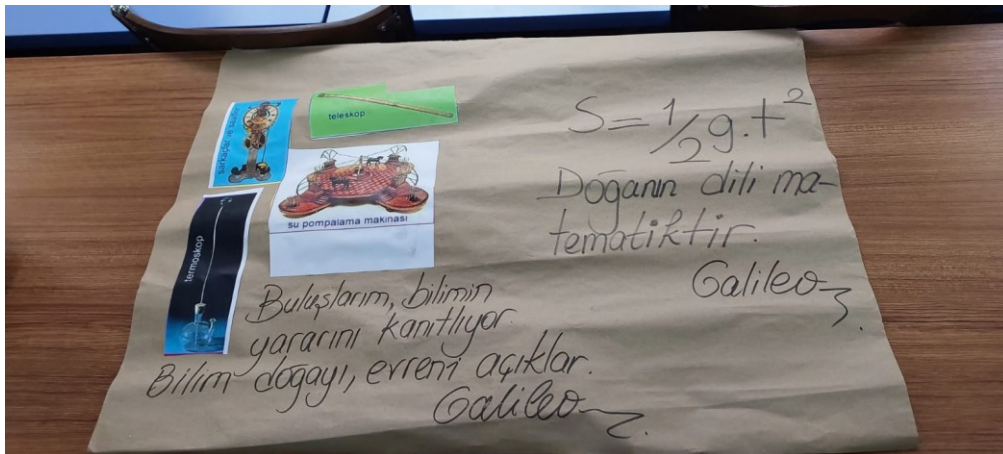 sarkaplar ve saatler
teleskop
su pompalama makinası
termoskop
S=1/2 g.t²
Doğanın dili ma-
tematiktir.
Galileo
Buluşlarım, bilimin
yararını kanıtlıyor.
Bilim doğayı, evreni açıklar.
Galileo